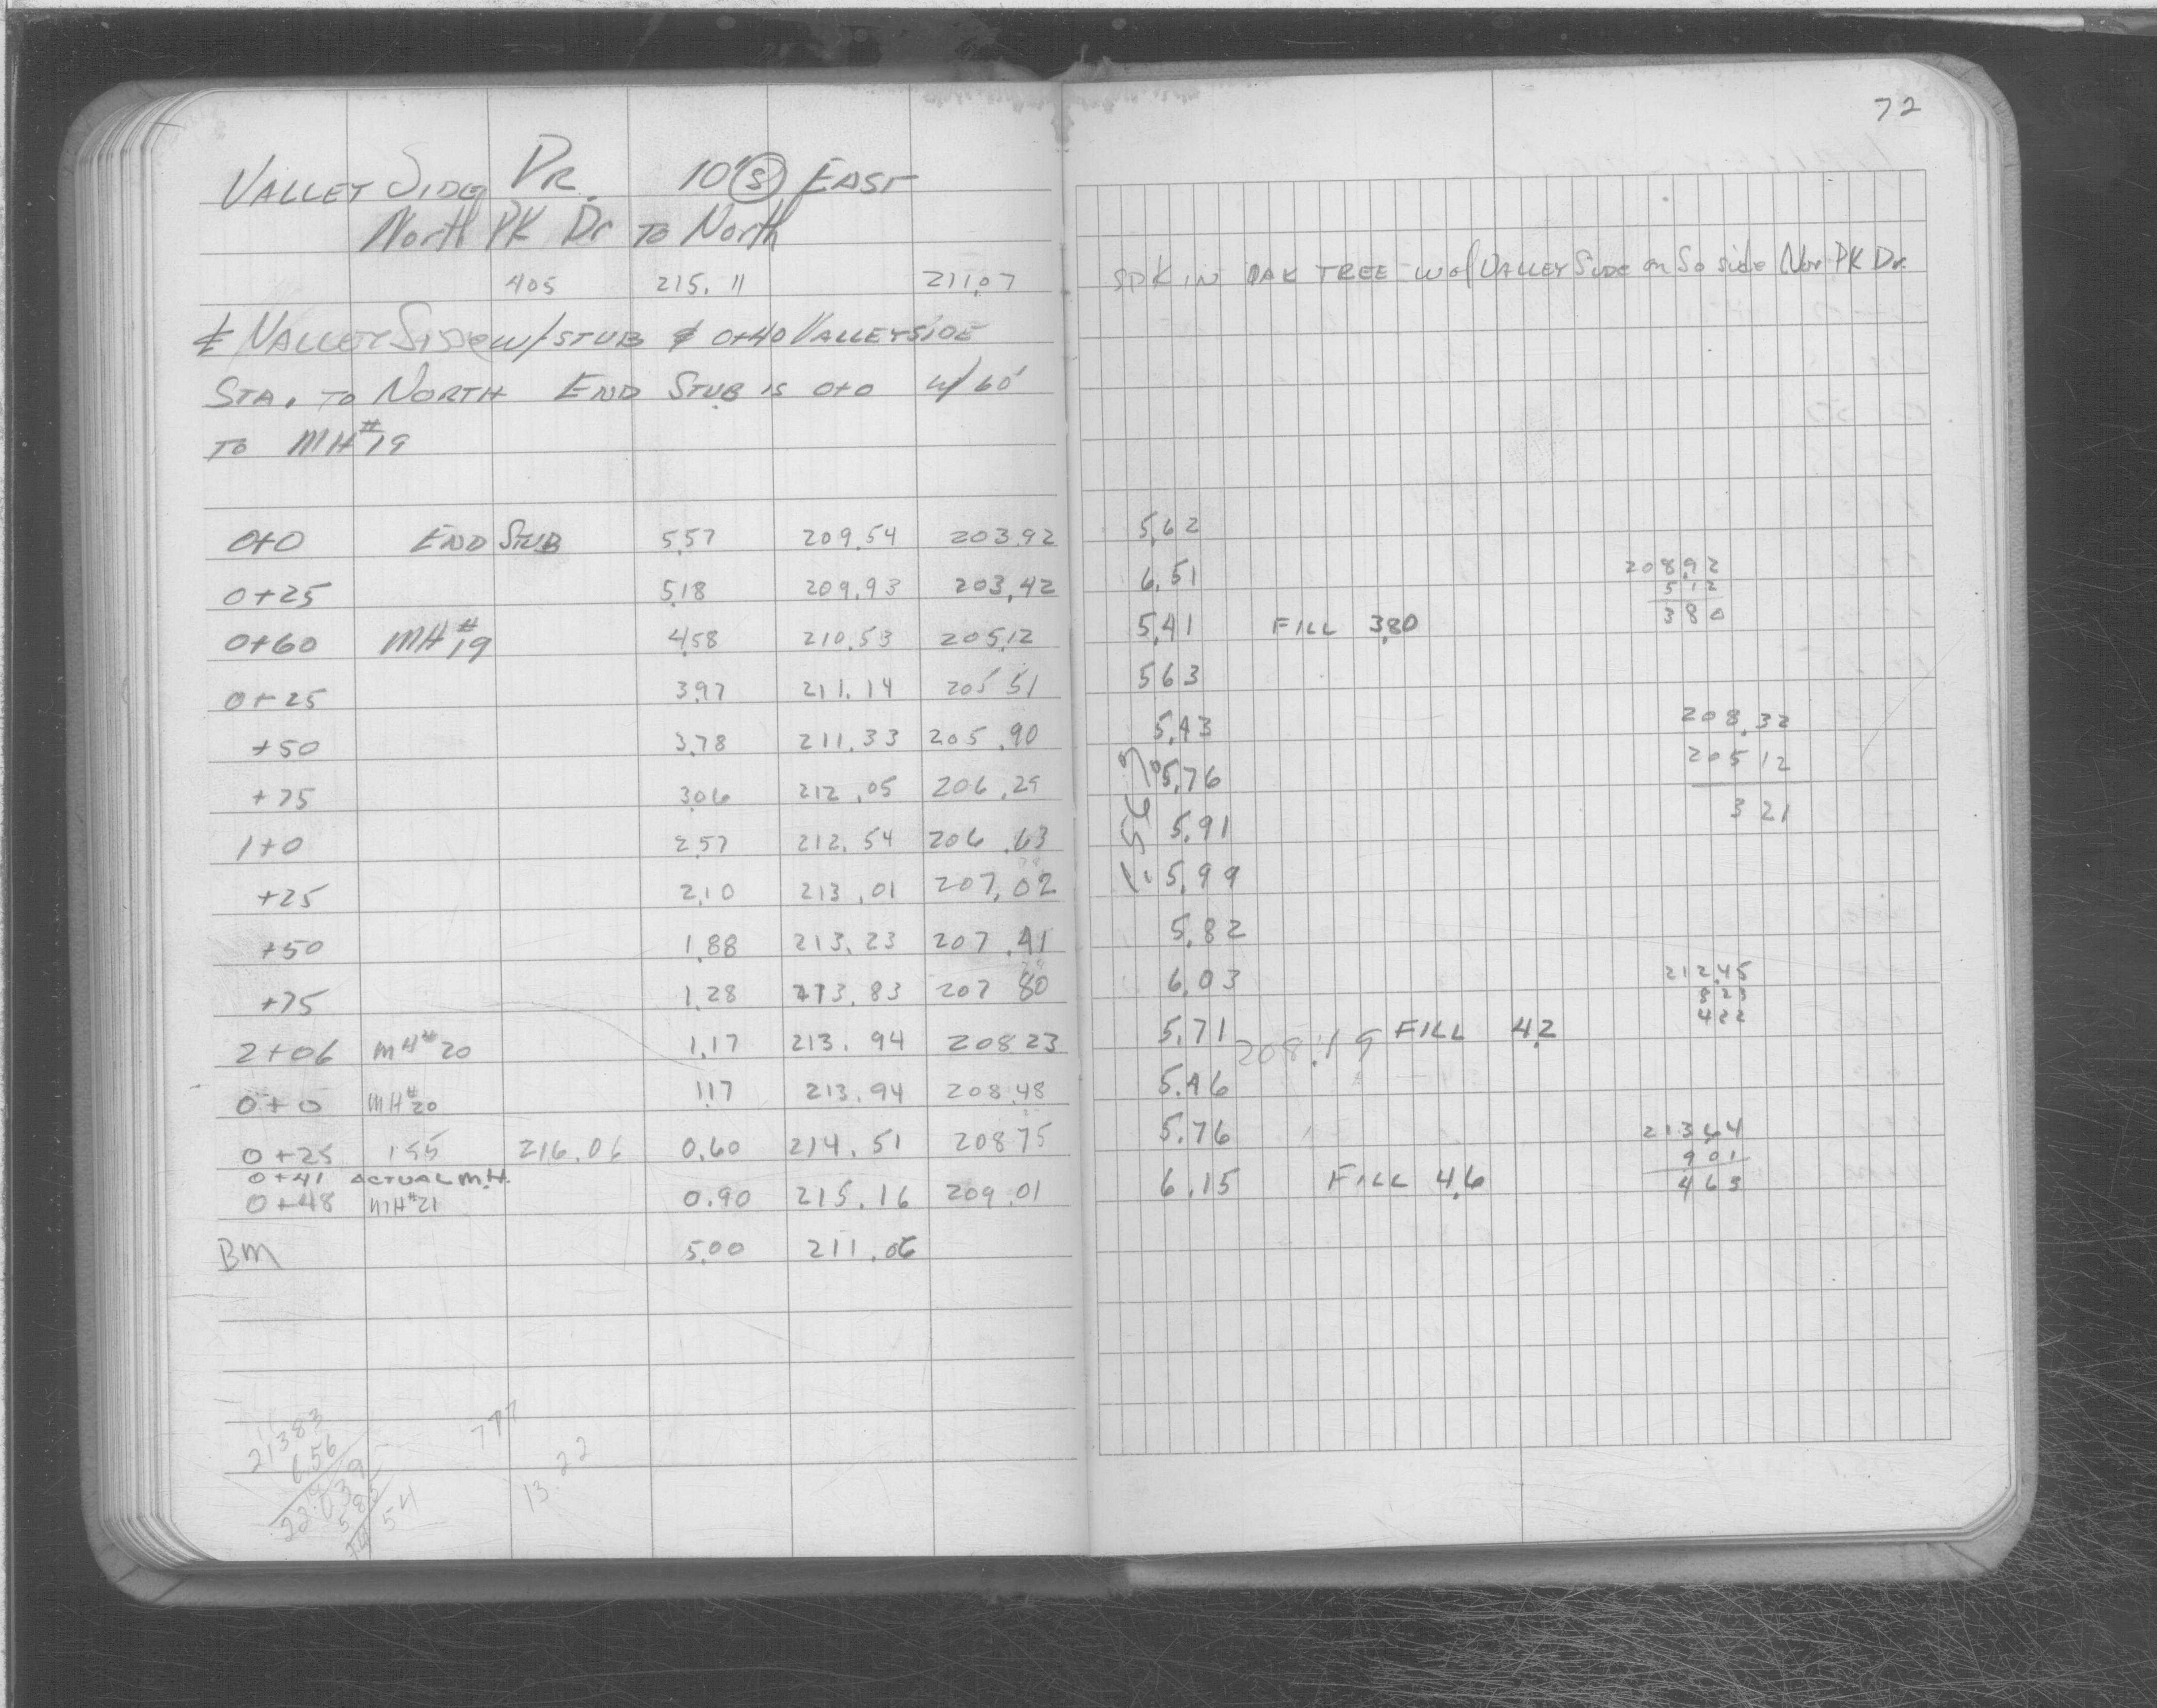 72
VALLEY SIDE DR. 10' (S) EAST
North PK Dr TO North
405 215.11 211.07 SPK IN OAK TREE W of VALLEY SIDE on So side Nor PK Dr.
VALLEY SIDE w/STUB ¢ 0+40 VALLEYSIDE
STA. TO NORTH END STUB IS 0+0 w/ 60'
TO MH#19
0+0 END STUB 5.57 209.54 203.92 5.62
0+25 5.18 209.93 203.42 6.51 208.92
512
0+60 MH#19 4.58 210.53 205.12 5.41 FILL 3.80 380
0+25 3.97 211.14 205 51 5 63
+50 3.78 211.33 205.90 5.43 208.32
+75 3.06 212.05 206.29 5.76 205 12
1+0 2.57 212.54 206.63 5.91 3 21
+25 2.10 213.01 207.02 5.99
1.56%
+50 1.88 213.23 207.41 5.82
+75 1.28 213.83 207 80 6.03 212.45
823
422
2+06 MH#20 1.17 213.94 208 23 5.71 208.19 FILL 4.2
0+0 MH#20 1.17 213.94 208.48 5.46
0+25 155 216.06 0.60 214.51 208 75 5.76 213.64
901
463
0+41 ACTUAL M.H.
0+48 MH#21 0.90 215.16 209.01 6.15 FILL 4.6
BM 5.00 211.06
213 83
6.56
13.22
54